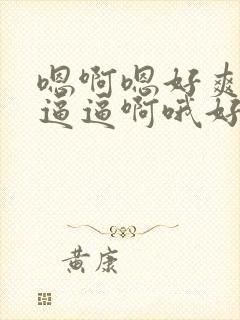 嗯啊嗯好爽
逼逼啊哦好
黄康